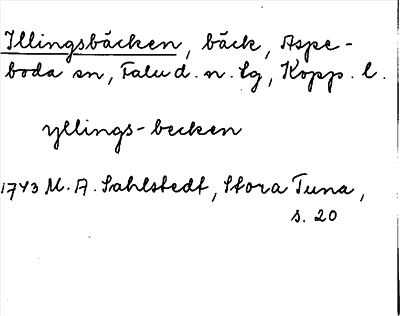 Illingsbäcken, bäck, Aspe-
boda sn, Falu d. n. lg, Kopp. l.
yllings-becken
1743 M. A. Sahlstedt, Stora Tuna,
s. 20